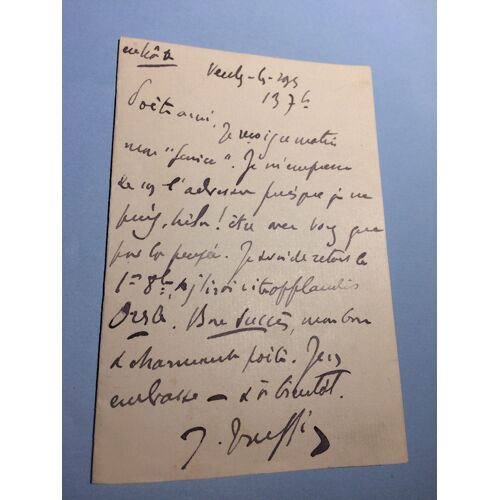 en hâte
Poète ami. Je reçois ce matin
mon "Service". Je m'empresse
de l'adresser puisque je ne
puis, hélas! être avec vous que
par la pensée. Je serai de retour le
1er 8bre, j'irai applaudir
Oreste. Bon succès, mon bon
& charmant poète. Je vous
embrasse — & à bientôt.
J.